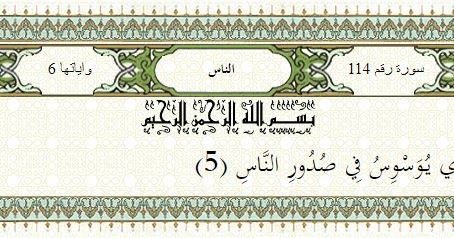 سورة رقم 114 الناس وآياتها 6
بسم الله الرحمن الرحيم
يُوَسْوِسُ فِي صُدُورِ النَّاسِ (5)